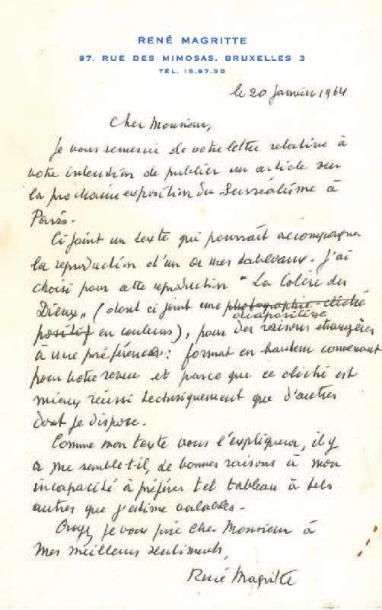 RENÉ MAGRITTE
97, RUE DES MIMOSAS, BRUXELLES 3
TÉL. 15.97.30
le 20 Janvier 1964
Cher Monsieur,
Je vous remercie de votre lettre relative à
votre intention de publier un article sur
la prochaine exposition du Surréalisme à
Paris.
Ci joint un texte qui pourrait accompagner
la reproduction d'un de mes tableaux. J'ai
choisi pour cette reproduction "La Colère des
Dieux" (dont ci joint une photographie-cliché
diapositive
positif en couleurs), pour des raisons étrangères
à une préférence : format en hauteur convenant
pour votre revue et parce que ce cliché est
mieux réussi techniquement que d'autres
dont je dispose.
Comme mon texte vous l'expliquera, il y
a me semble t'il, de bonnes raisons à mon
incapacité à préférer tel tableau à tels
autres que j'estime valables.
Croyez, je vous prie Cher Monsieur à
mes meilleurs sentiments,
René Magritte